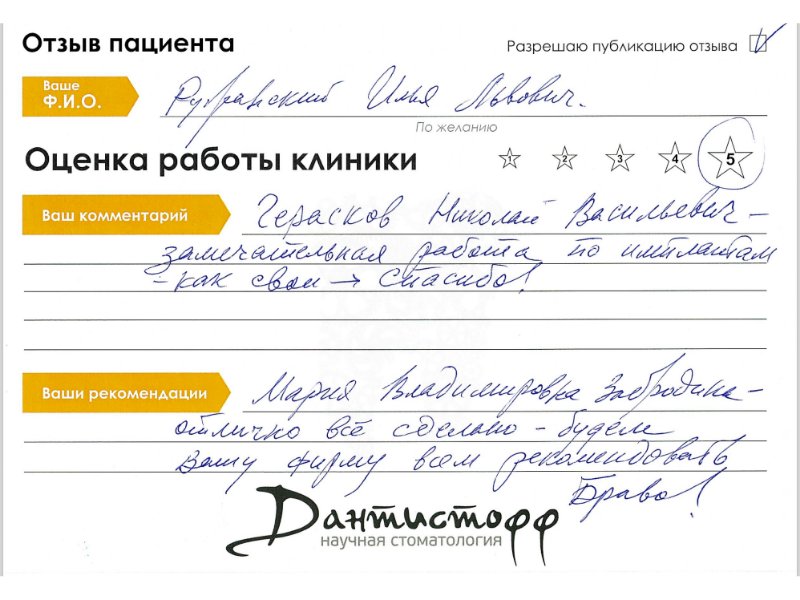 Отзыв пациента
Разрешаю публикацию отзыва
Ваше
Ф.И.О.
Илья Львович.
По желанию
Оценка работы клиники
1 2 3 4 5
Ваш комментарий
Герасков Николай Васильевич –
замечательная работа по имплантам
– как свои → Спасибо!
Ваши рекомендации
Мария Владимировна Забродина –
отлично всё сделано – будем
Вашу фирму всем рекомендовать
Браво!
Дантистофф
научная стоматология